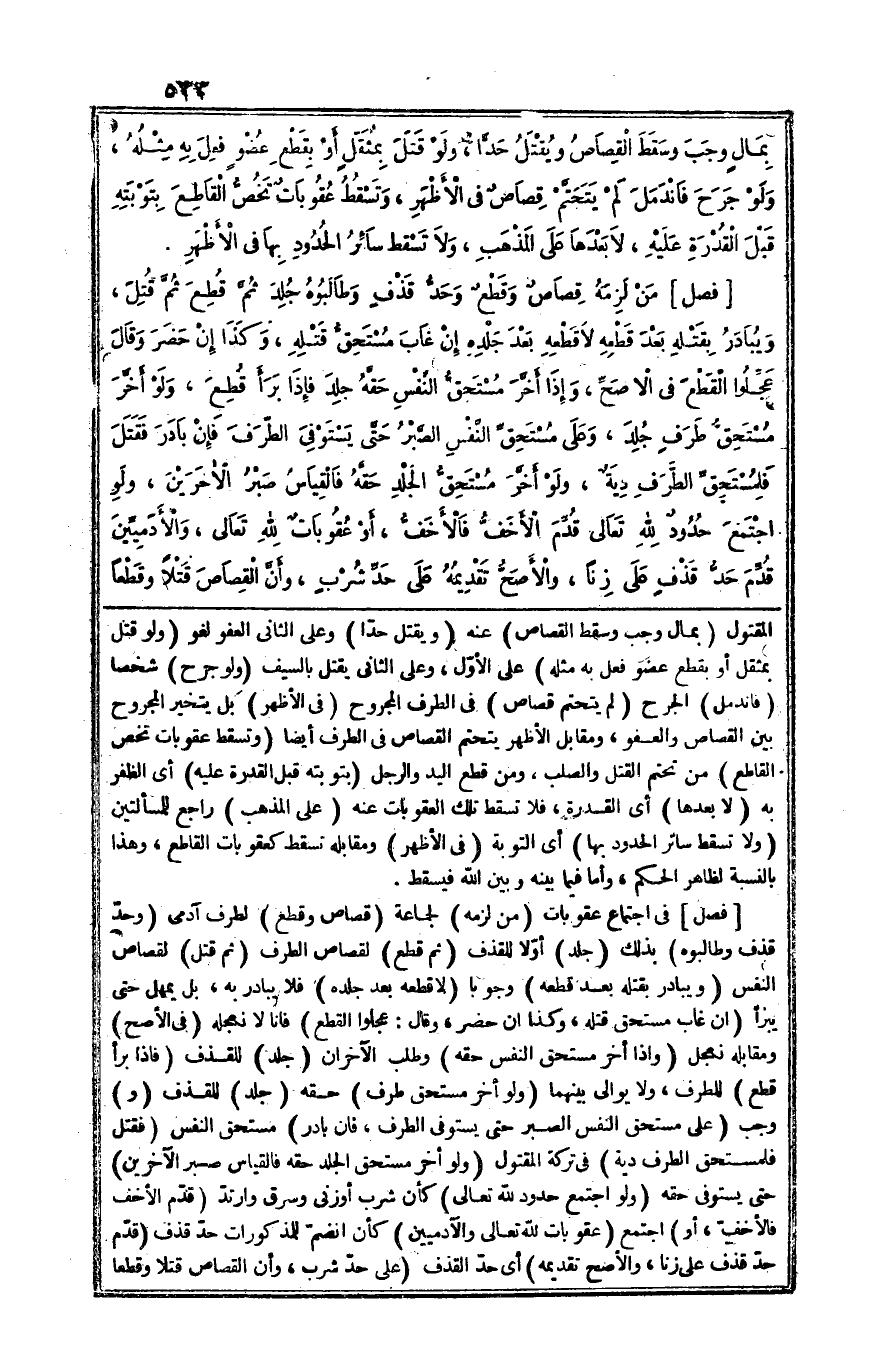 ٥٣٣
بِمَالٍ وجَبَ وسَقَطَ الْقِصَاصُ ويُقْتَلُ حَدًّا ، ولَوْ قَتَلَ بِمُثَقَّلٍ أَوْ بِقَطْعِ عُضْوٍ فعِلَ بِهِ مِثْلُهُ ،
وَلَوْ جَرَحَ فَانْدَمَلَ لَمْ يَتَحَتَّمْ قِصَاصٌ فى الْأَظْهَرِ ، وَتَسْقُطُ عُقُوبَاتٌ تَخُصُّ الْقَاطِعَ بِتَوْبَتِهِ
قَبْلَ الْقُدْرَةِ عَلَيْهِ ، لاَ بَعْدَهَا عَلَى المَذْهَبِ ، وَلاَ تَسْقط سَائرُ الحُدُودِ بِهَا فى الْأَظْهَرِ .
[ فصل ] مَنْ لَزِمَهُ قِصَاصٌ وَقَطْعٌ وَحَدُّ قَذْفٍ وَطَالَبُوهُ جُلِدَ ثُمَّ قُطِعَ ثُمَّ قُتِلَ ،
وَيُبَادَرُ بِقَتْلِهِ بَعْدَ قَطْعِهِ لاَ قَطْعِهِ بَعْدَ جَلْدِهِ إِنْ غَابَ مُسْتَحِقُّ قَتْلِهِ ، وَكَذَا إِنْ حَضَرَ وَقَالَ
عَجِّلُوا الْقَطْعَ فى الْاصَحِّ ، وَإِذَا أَخَّرَ مُسْتَحِقُّ النَّفْسِ حَقَّهُ جلِدَ فإِذَا بَرَأَ قُطِعَ ، وَلَوْ أَخَّرَ
مُسْتَحِقُّ طَرَفٍ جُلِدَ ، وَعَلَى مُسْتَحِقِّ النَّفْسِ الصَّبْرُ حَتَّى يَسْتَوْفِىَ الطَّرَفَ فَإِنْ بَادَرَ فَقَتَلَ
فَلِمُسْتَحِقِّ الطَّرَفِ دِيَةٌ ، ولَوْ أَخَّرَ مُسْتَحِقُّ الجَلْدِ حَقَّهُ فَالْقِيَاسُ صَبْرُ الْآخَرَيْنَ ، ولَوِ
اجْتَمَعَ حُدُودٌ لِلّٰهِ تَعَالَى قُدِّمَ الْأَخَفُّ فَالْأَخَفُّ ، أَوْ عُقُوبَاتٌ لِلّٰهِ تَعَالى ، وَالْآدَمِيِّينَ
قُدِّمَ حَدُّ قَذْفٍ عَلَى زِنًا ، والْأَصَحُّ تَقْدِيمُهُ عَلَى حَدِّ شُرْبٍ ، وأَنَّ الْقِصَاصَ قَتْلاً وقَطْعاً
المقتول ( بمال وجب وسقط القصاص ) عنه ( ويقتل حدّا ) وعلى الثانى العفو لغو ( ولو قتل
بمثقل أو بقطع عضو فعل به مثله ) على الأوّل ، وعلى الثانى يقتل بالسيف ( ولو جرح ) شخصا
( فاندمل ) الجرح ( لم يتحتم قصاص ) فى الطرف المجروح ( فى الأظهر ) بل يتخير المجروح
بين القصاص والعفو ، ومقابل الأظهر يتحتم القصاص فى الطرف أيضا ( وتسقط عقوبات تخص
القاطع ) من تحتم القتل والصلب ، ومن قطع اليد والرجل ( بتوبته قبل القدرة عليه ) أى الظفر
به ( لا بعدها ) أى القدرة ، فلا تسقط تلك العقوبات عنه ( على المذهب ) راجع للمسألتين
( ولا تسقط سائر الحدود بها ) أى التوبة ( فى الأظهر ) ومقابله تسقط كعقوبات القاطع ، وهذا
بالنسبة لظاهر الحكم ، وأما فيما بينه وبين الله فيسقط .
[ فصل ] فى اجتماع عقوبات ( من لزمه ) لجماعة ( قصاص وقطع ) لطرف آدمى ( وحدّ
قذف وطالبوه ) بذلك ( جلد ) أوّلا للقذف ( ثم قطع ) لقصاص الطرف ( ثم قتل ) لقصاص
النفس ( ويبادر بقتله بعد قطعه ) وجوبا ( لا قطعه بعد جلده ) فلا يبادر به ، بل يمهل حتى
يبرأ ( ان غاب مستحق قتله ، وكذا ان حضر ، وقال : عجلوا القطع ) فانا لا نعجله ( فى الأصح )
ومقابله نعجل ( واذا أخر مستحق النفس حقه ) وطلب الآخران ( جلد ) للقذف ( فاذا برأ
قطع ) للطرف ، ولا يوالى بينهما ( ولو أخر مستحق طرف ) حقه ( جلد ) للقذف ( و )
وجب ( على مستحق النفس الصبر حتى يستوفى الطرف ، فان بادر ) مستحق النفس ( فقتل
فلمستحق الطرف دية ) فى تركة المقتول ( ولو أخر مستحق الجلد حقه فالقياس صبر الآخرين )
حتى يستوفى حقه ( ولو اجتمع حدود لله تعالى ) كأن شرب أوزنى وسرق وارتد ( قدّم الأخف
فالأخف ، أو ) اجتمع ( عقوبات لله تعالى والآدميين ) كأن انضم للمذكورات حدّ قذف ( قدّم
حدّ قذف على زنا ، والأصح تقديمه ) أى حدّ القذف ( على حدّ شرب ، وأن القصاص قتلا وقطعا